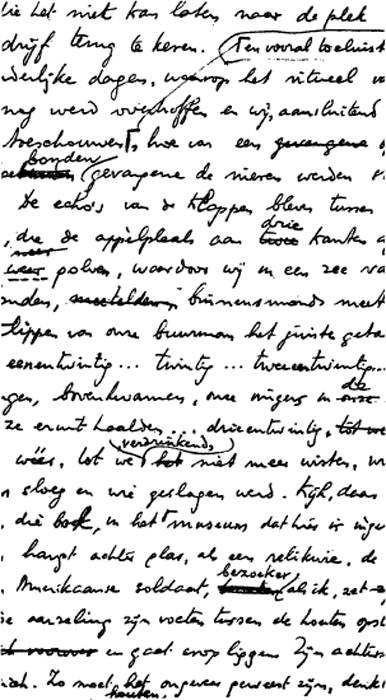 die het niet kan laten naar de plek
drijf terug te keren. Ten vooral toeluist
derlijke dagen, waarop het ritueel v
nog werd overtroffen en wij, aansluitend
toeschouwers, hoe van een gevangene
bonden
gevangene de nieren werden
De echo's van de klappen bleven tussen
drie
, die de appèlplaats aan twee kanten a
weer polsen, waardoor wij in een zee va
onden, meetelden, binnensmonds meet
lippen van onze buurman het juiste geta
eenentwintig... twintig... tweeentwintig...
gen, bovenkwamen, onze vingers in de
ze eruit haalden... drieentwintig, tot we
verdrinkend
wéér, tot we het niet meer wisten, w
n sloeg en wie geslagen werd. Kijk, daar
, die bok, in het museum dat hier is inge
, hangt achter glas, als een relikwie, de
bezoeker
, Amerikaanse soldaat, als ik, zet
se aarzeling zijn voeten tussen de houten opst
en gaat erop liggen. Zijn achters
zich. Zo moet het ongeveer geweest zijn, denk
houten